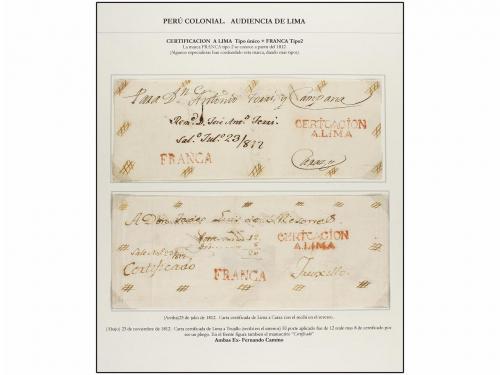 PERÚ COLONIAL. AUDIENCIA DE LIMA
CERTIFICACION A LIMA Tipo único + FRANCA Tipo2
La marca FRANCA tipo 2 se conoce a partir del 1812.
(Algunos especialistas han confundido esta marca, dando mas tipos).
Para Dn. Antonio y Campana
Jose Anto.
CERTCACION
A.LIMA
Sal.o Jul.o 23/812
FRANCA
A Don
12
8
20
CERTCACION
A.LIMA
Certificado
FRANCA
Truxillo
(Arriba)23 de julio de 1812. Carta certificada de Lima a Caraz con el recibí en el reverso.
(Abajo) 23 de noviembre de 1812. Carta certificada de Lima a Trujillo (recibí en el anverso) El porte aplicado fue de 12 reale mas 8 de certificado por
ser un pliego. En el frente figura tambien el manuscrito "Certificado"
Ambas Ex- Fernando Camino